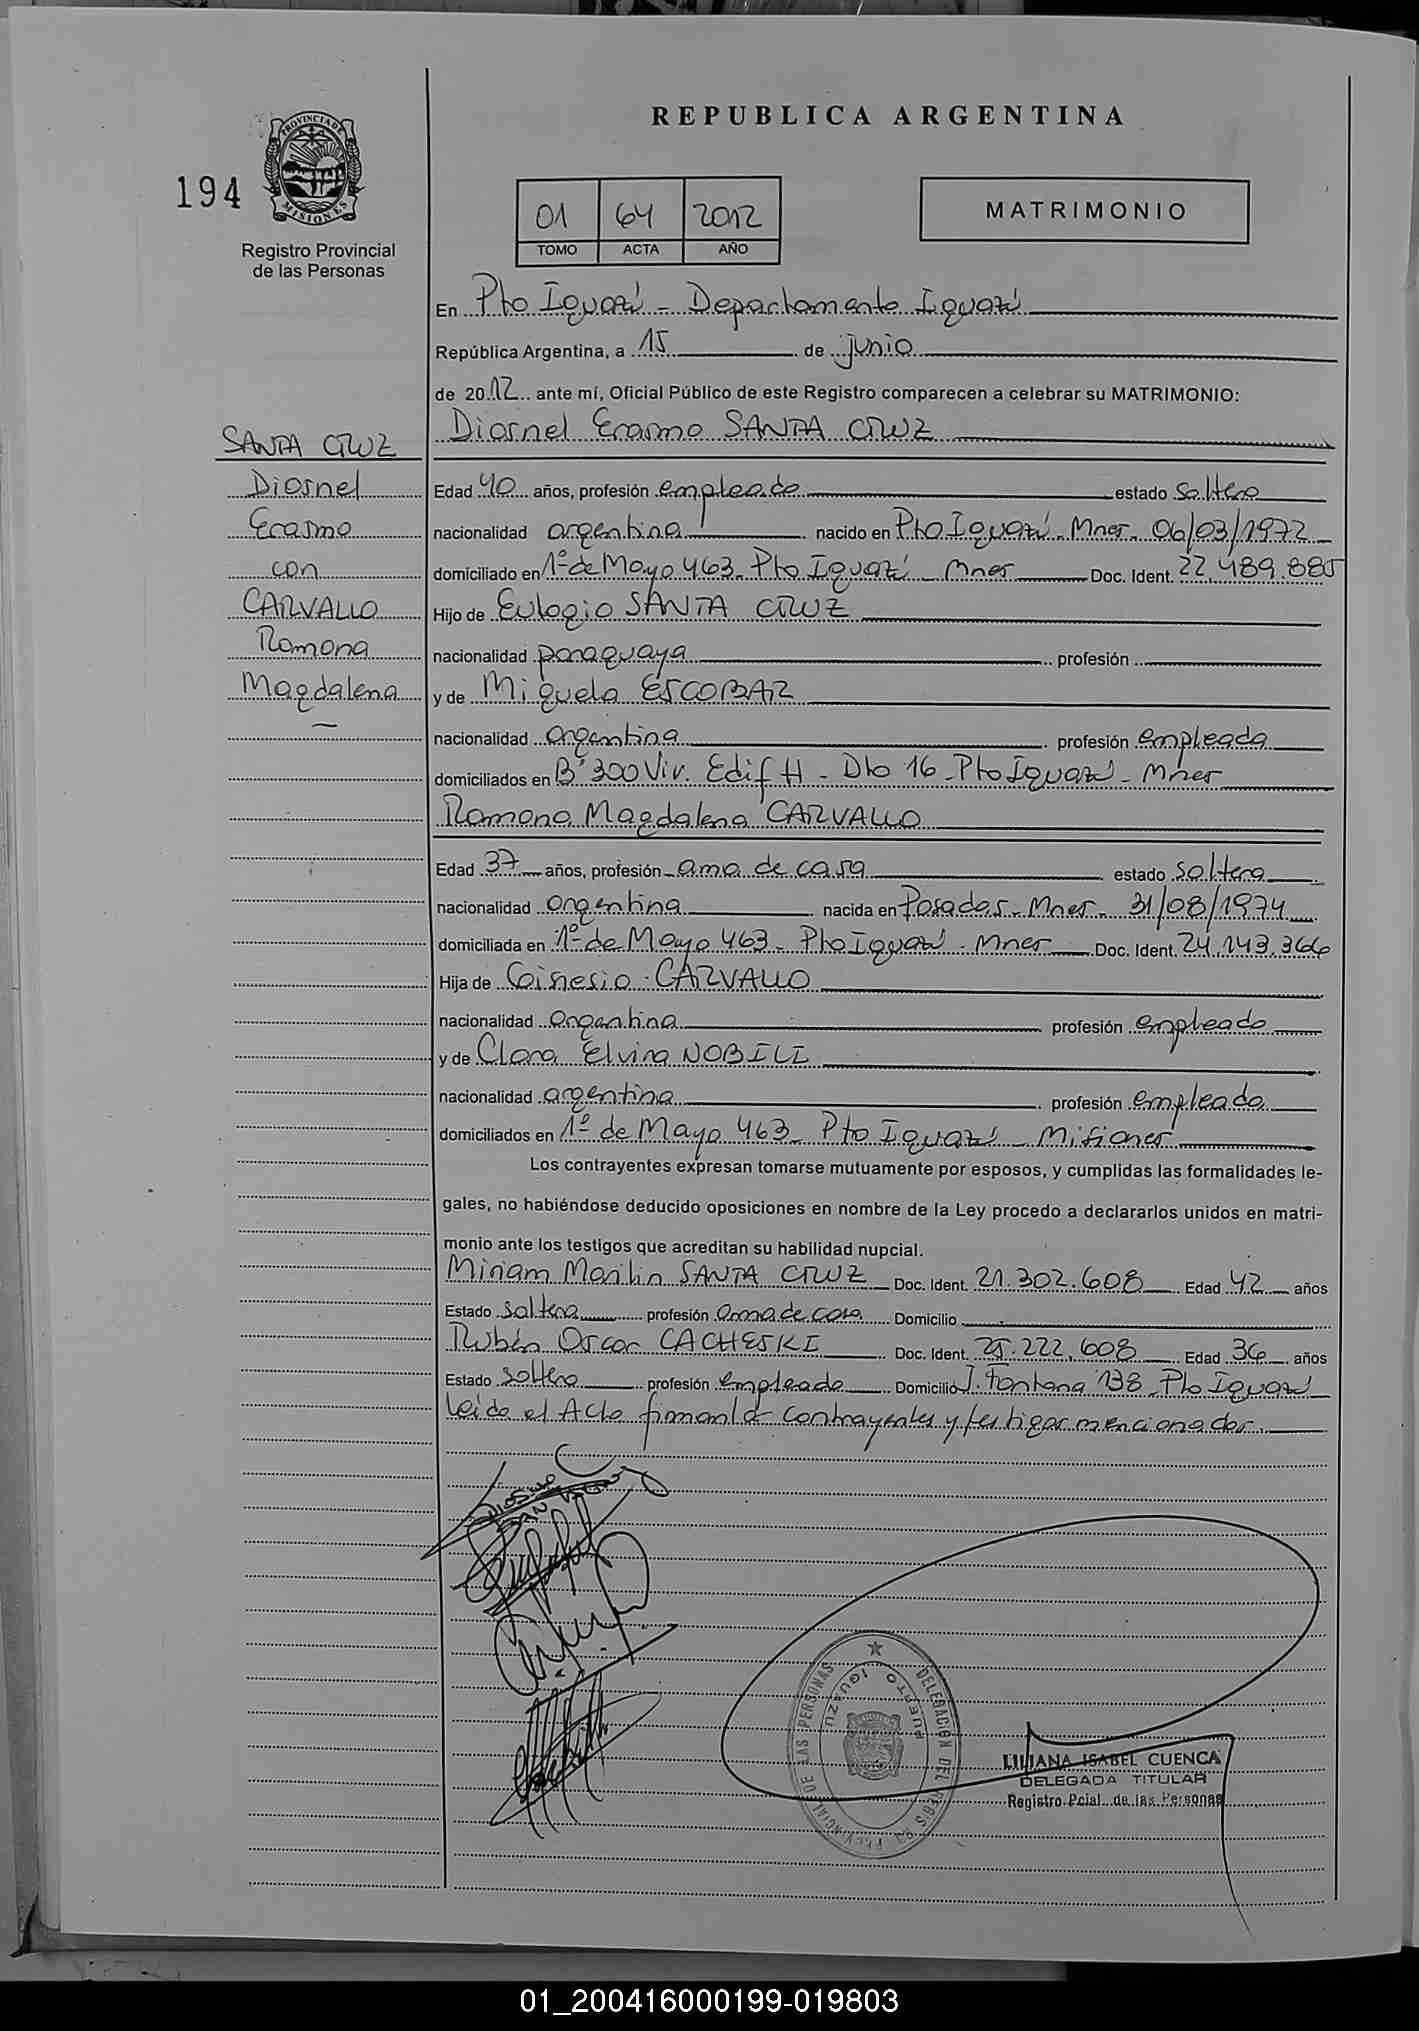 REPUBLICA ARGENTINA
194
PROVINCIA DE
MISIONES
Registro Provincial
de las Personas
01 64 2012
TOMO ACTA AÑO
MATRIMONIO
En Pto Iguazú - Departamento Iguazú
República Argentina, a 15 de junio
de 2012 ante mí, Oficial Público de este Registro comparecen a celebrar su MATRIMONIO:
SANTA CRUZ
Diosnel
Erasmo
con
CARVALLO
Ramona
Magdalena
Diosnel Erasmo SANTA CRUZ
Edad 40 años, profesión empleado estado soltero
nacionalidad argentina nacido en Pto Iguazú - Mnes - 06/03/1972
domiciliado en 1º de Mayo 463 - Pto Iguazú - Mnes Doc. Ident. 22.489.885
Hijo de Eulogio SANTA CRUZ
nacionalidad paraguaya profesión
y de Miguela ESCOBAR
nacionalidad argentina profesión empleada
domiciliados en Bº 300 Viv. Edif H - Dto 16 - Pto Iguazú - Mnes
Ramona Magdalena CARVALLO
Edad 37 años, profesión ama de casa estado soltera
nacionalidad argentina nacida en Posadas - Mnes - 31/08/1974
domiciliada en 1º de Mayo 463 - Pto Iguazú - Mnes Doc. Ident. 24.143.366
Hija de Ginesio CARVALLO
nacionalidad argentina profesión empleado
y de Clara Elvira NOBILI
nacionalidad argentina profesión empleada
domiciliados en 1º de Mayo 463 - Pto Iguazú - Misiones
Los contrayentes expresan tomarse mutuamente por esposos, y cumplidas las formalidades le-
gales, no habiéndose deducido oposiciones en nombre de la Ley procedo a declararlos unidos en matri-
monio ante los testigos que acreditan su habilidad nupcial.
Miriam Marilin SANTA CRUZ Doc. Ident. 21.302.608 Edad 42 años
Estado soltera profesión ama de casa Domicilio
Rubén Oscar CACHESKI Doc. Ident. 25.222.608 Edad 36 años
Estado soltero profesión empleado Domicilio J. Fontana 138 - Pto Iguazú
Leída el Acta firman los contrayentes y testigos mencionados.
DELEGACION DEL REGISTRO PROVINCIAL DE LAS PERSONAS
PUERTO IGUAZU
LILIANA ISABEL CUENCA
DELEGADA TITULAR
Registro Pcial. de las Personas
01_200416000199-019803